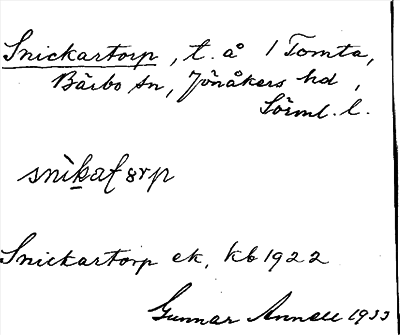 Snickartorp, t. å 1 Tomta,
Bärbo sn, Jönåkers hd,
Sörml. l.
snìkat ɷrp
Snickartorp ek, kb 1922
Gunnar Annell 1933